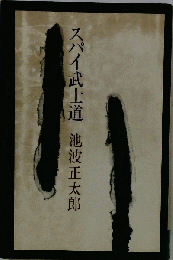 スパイ武士道
池波正太郎